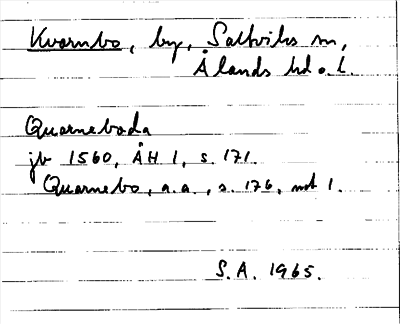 Kvarnbo, by, Saltviks sn,
Ålands hd o. l.
Quarneboda
jb 1560, ÅH 1, s. 171.
Quarnebo, a.a., s. 176, not 1.
S.A. 1965.